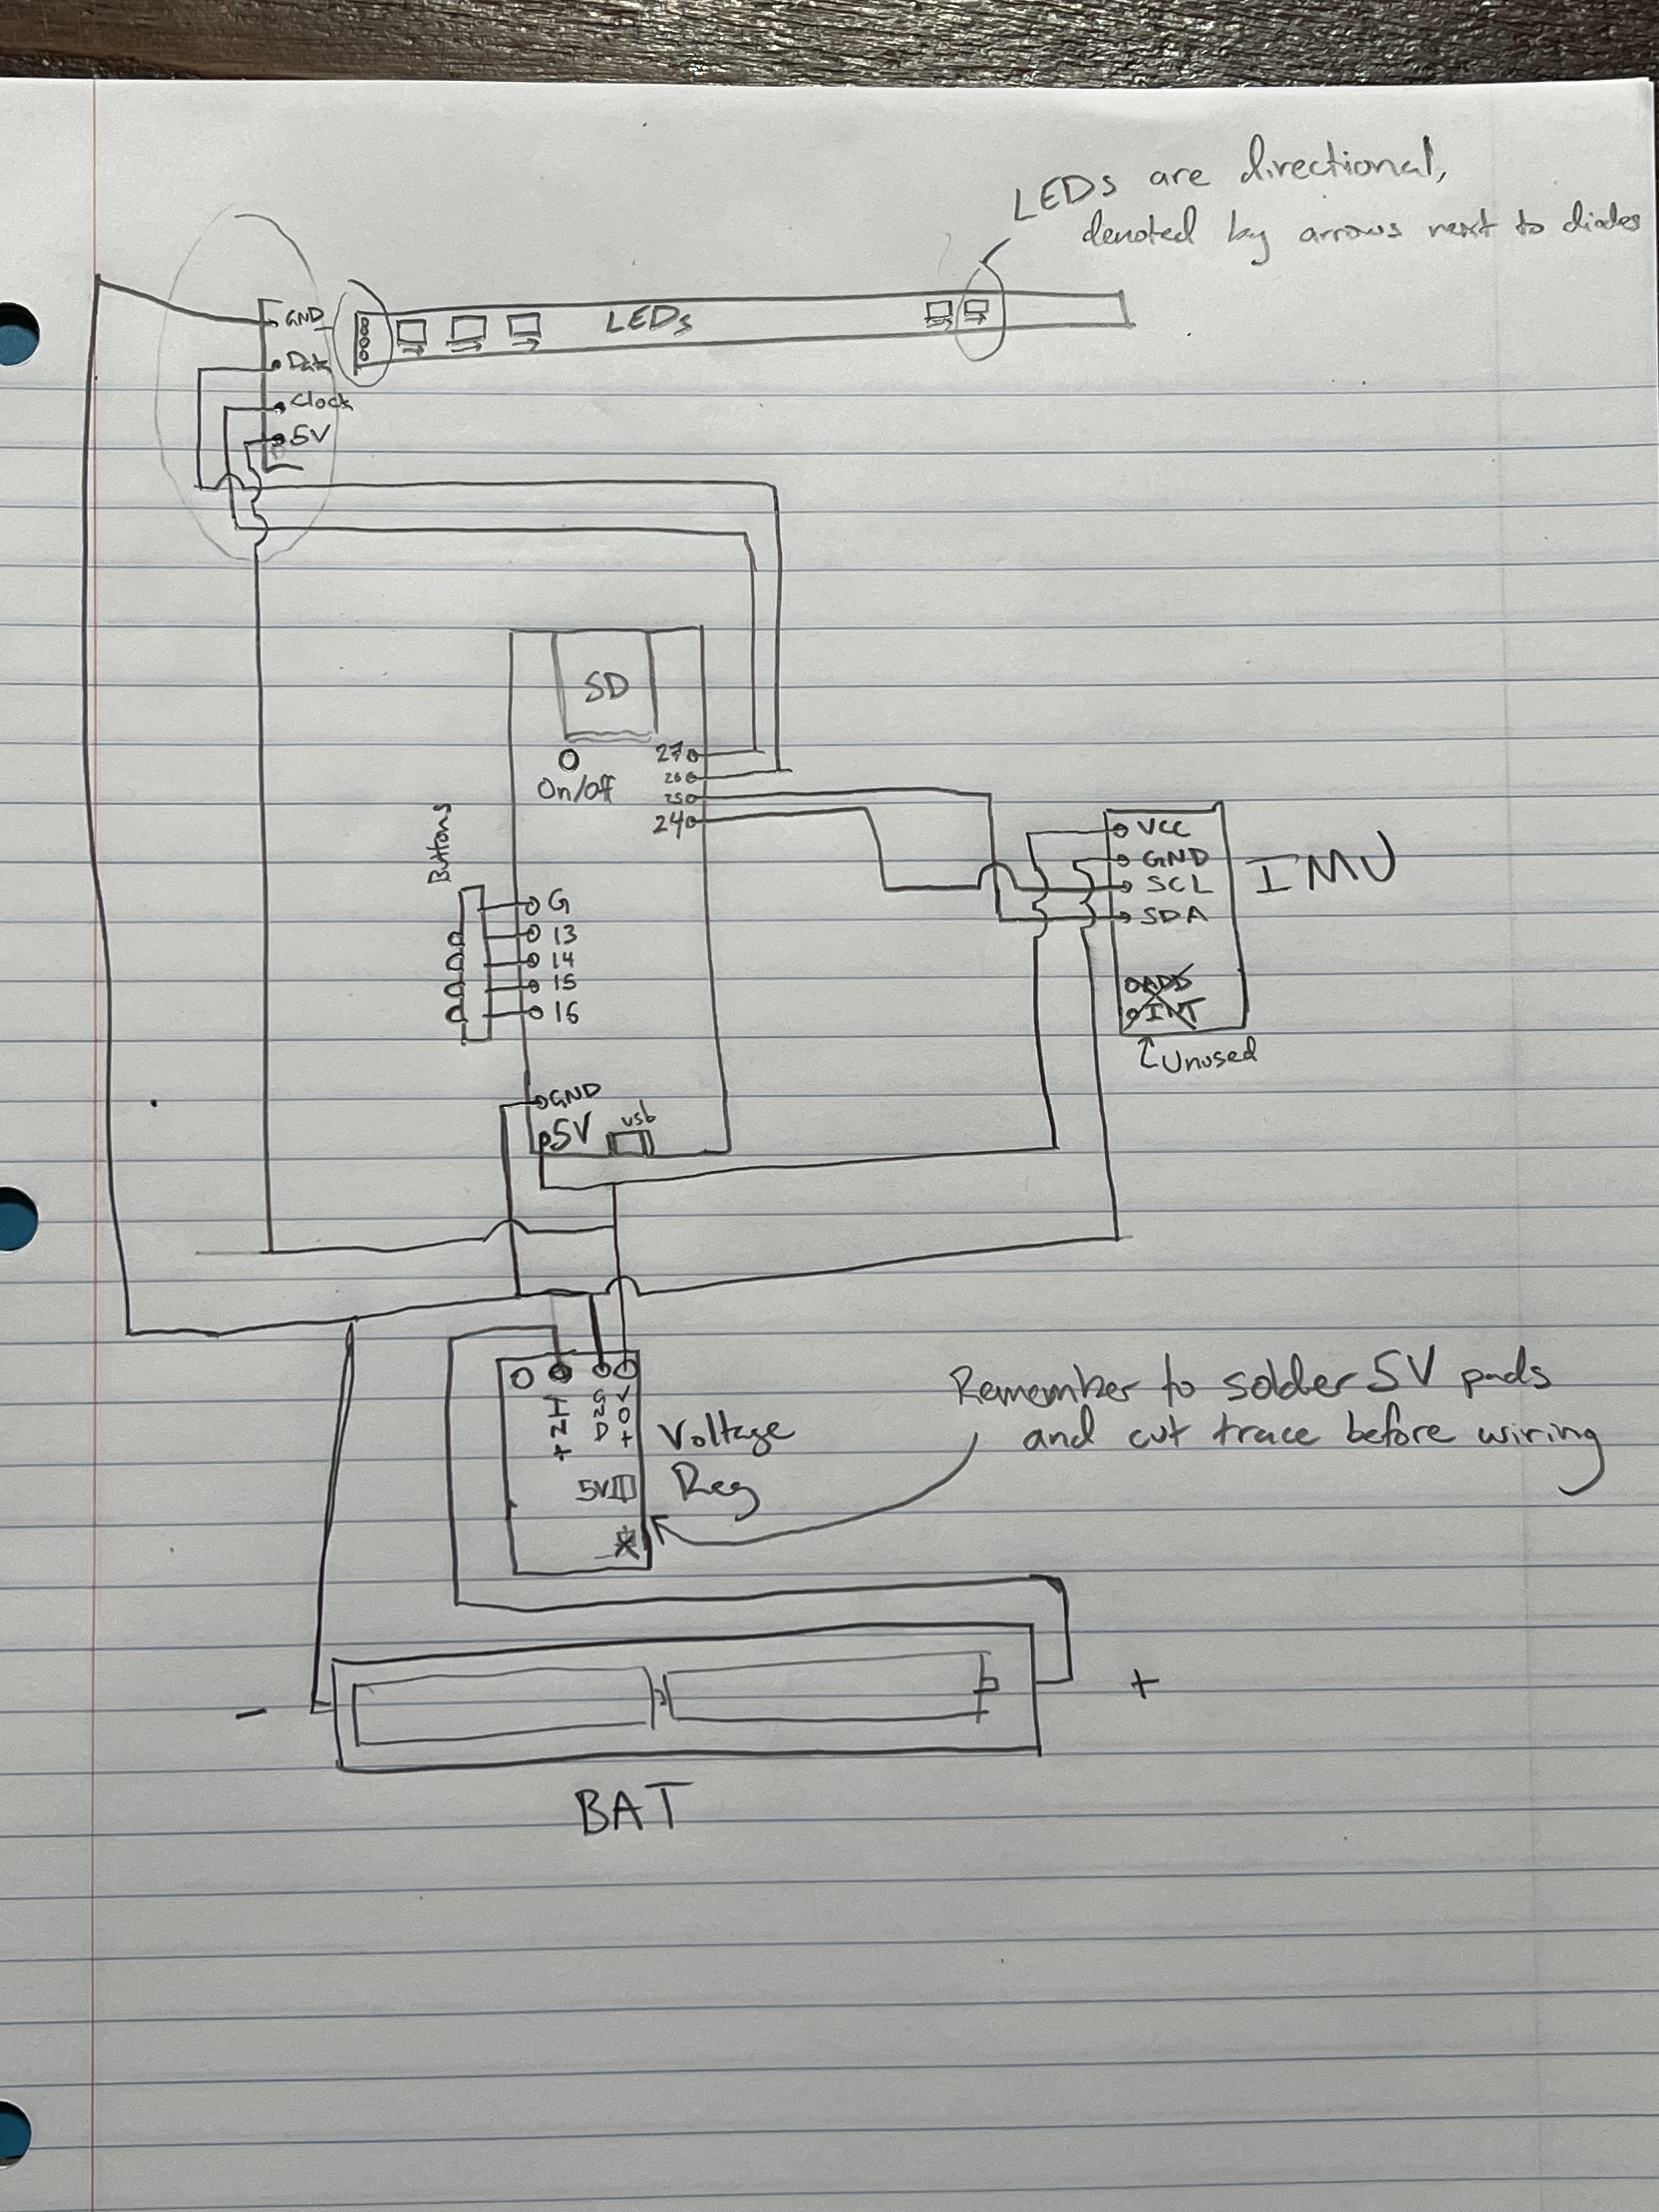 LEDs are directional,
denoted by arrows next to diodes
GND
LEDs
Data
Clock
5V
SD
27
On/off
26
25
24
Buttons
VCC
GND
IMU
SCL
SDA
G
13
14
15
16
ADD
INT
Unused
GND
5V
usb
IN+
GND
VO+
Voltage
Reg
5V
Remember to solder 5V pads
and cut trace before wiring
-
+
BAT